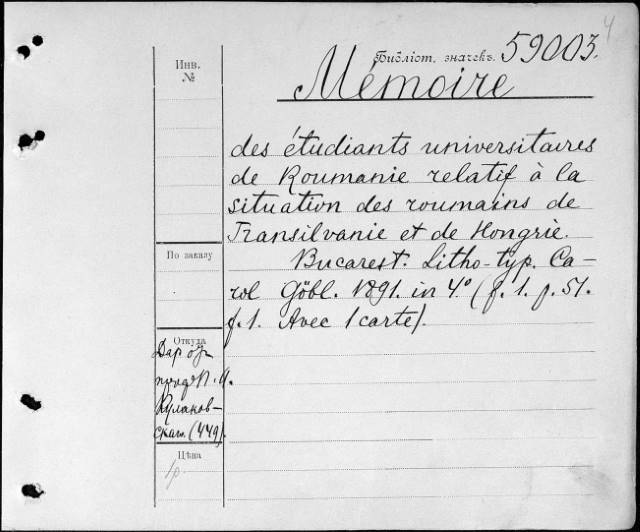 4
Библіот. значекъ. 59003.
Инв.
№
Mémoire
des étudiants universitaires
de Roumanie relatif à la
situation des roumains de
Transilvanie et de Hongrie.
Bucarest. Litho-typ. Ca-
rol Göbl. 1891. in 4.° (f. 1. p. 51.
f. 1. Avec 1 carte).
По заказу
Откуда
Даръ
проф.
Кулаков-
скаго. (449).
Цѣна